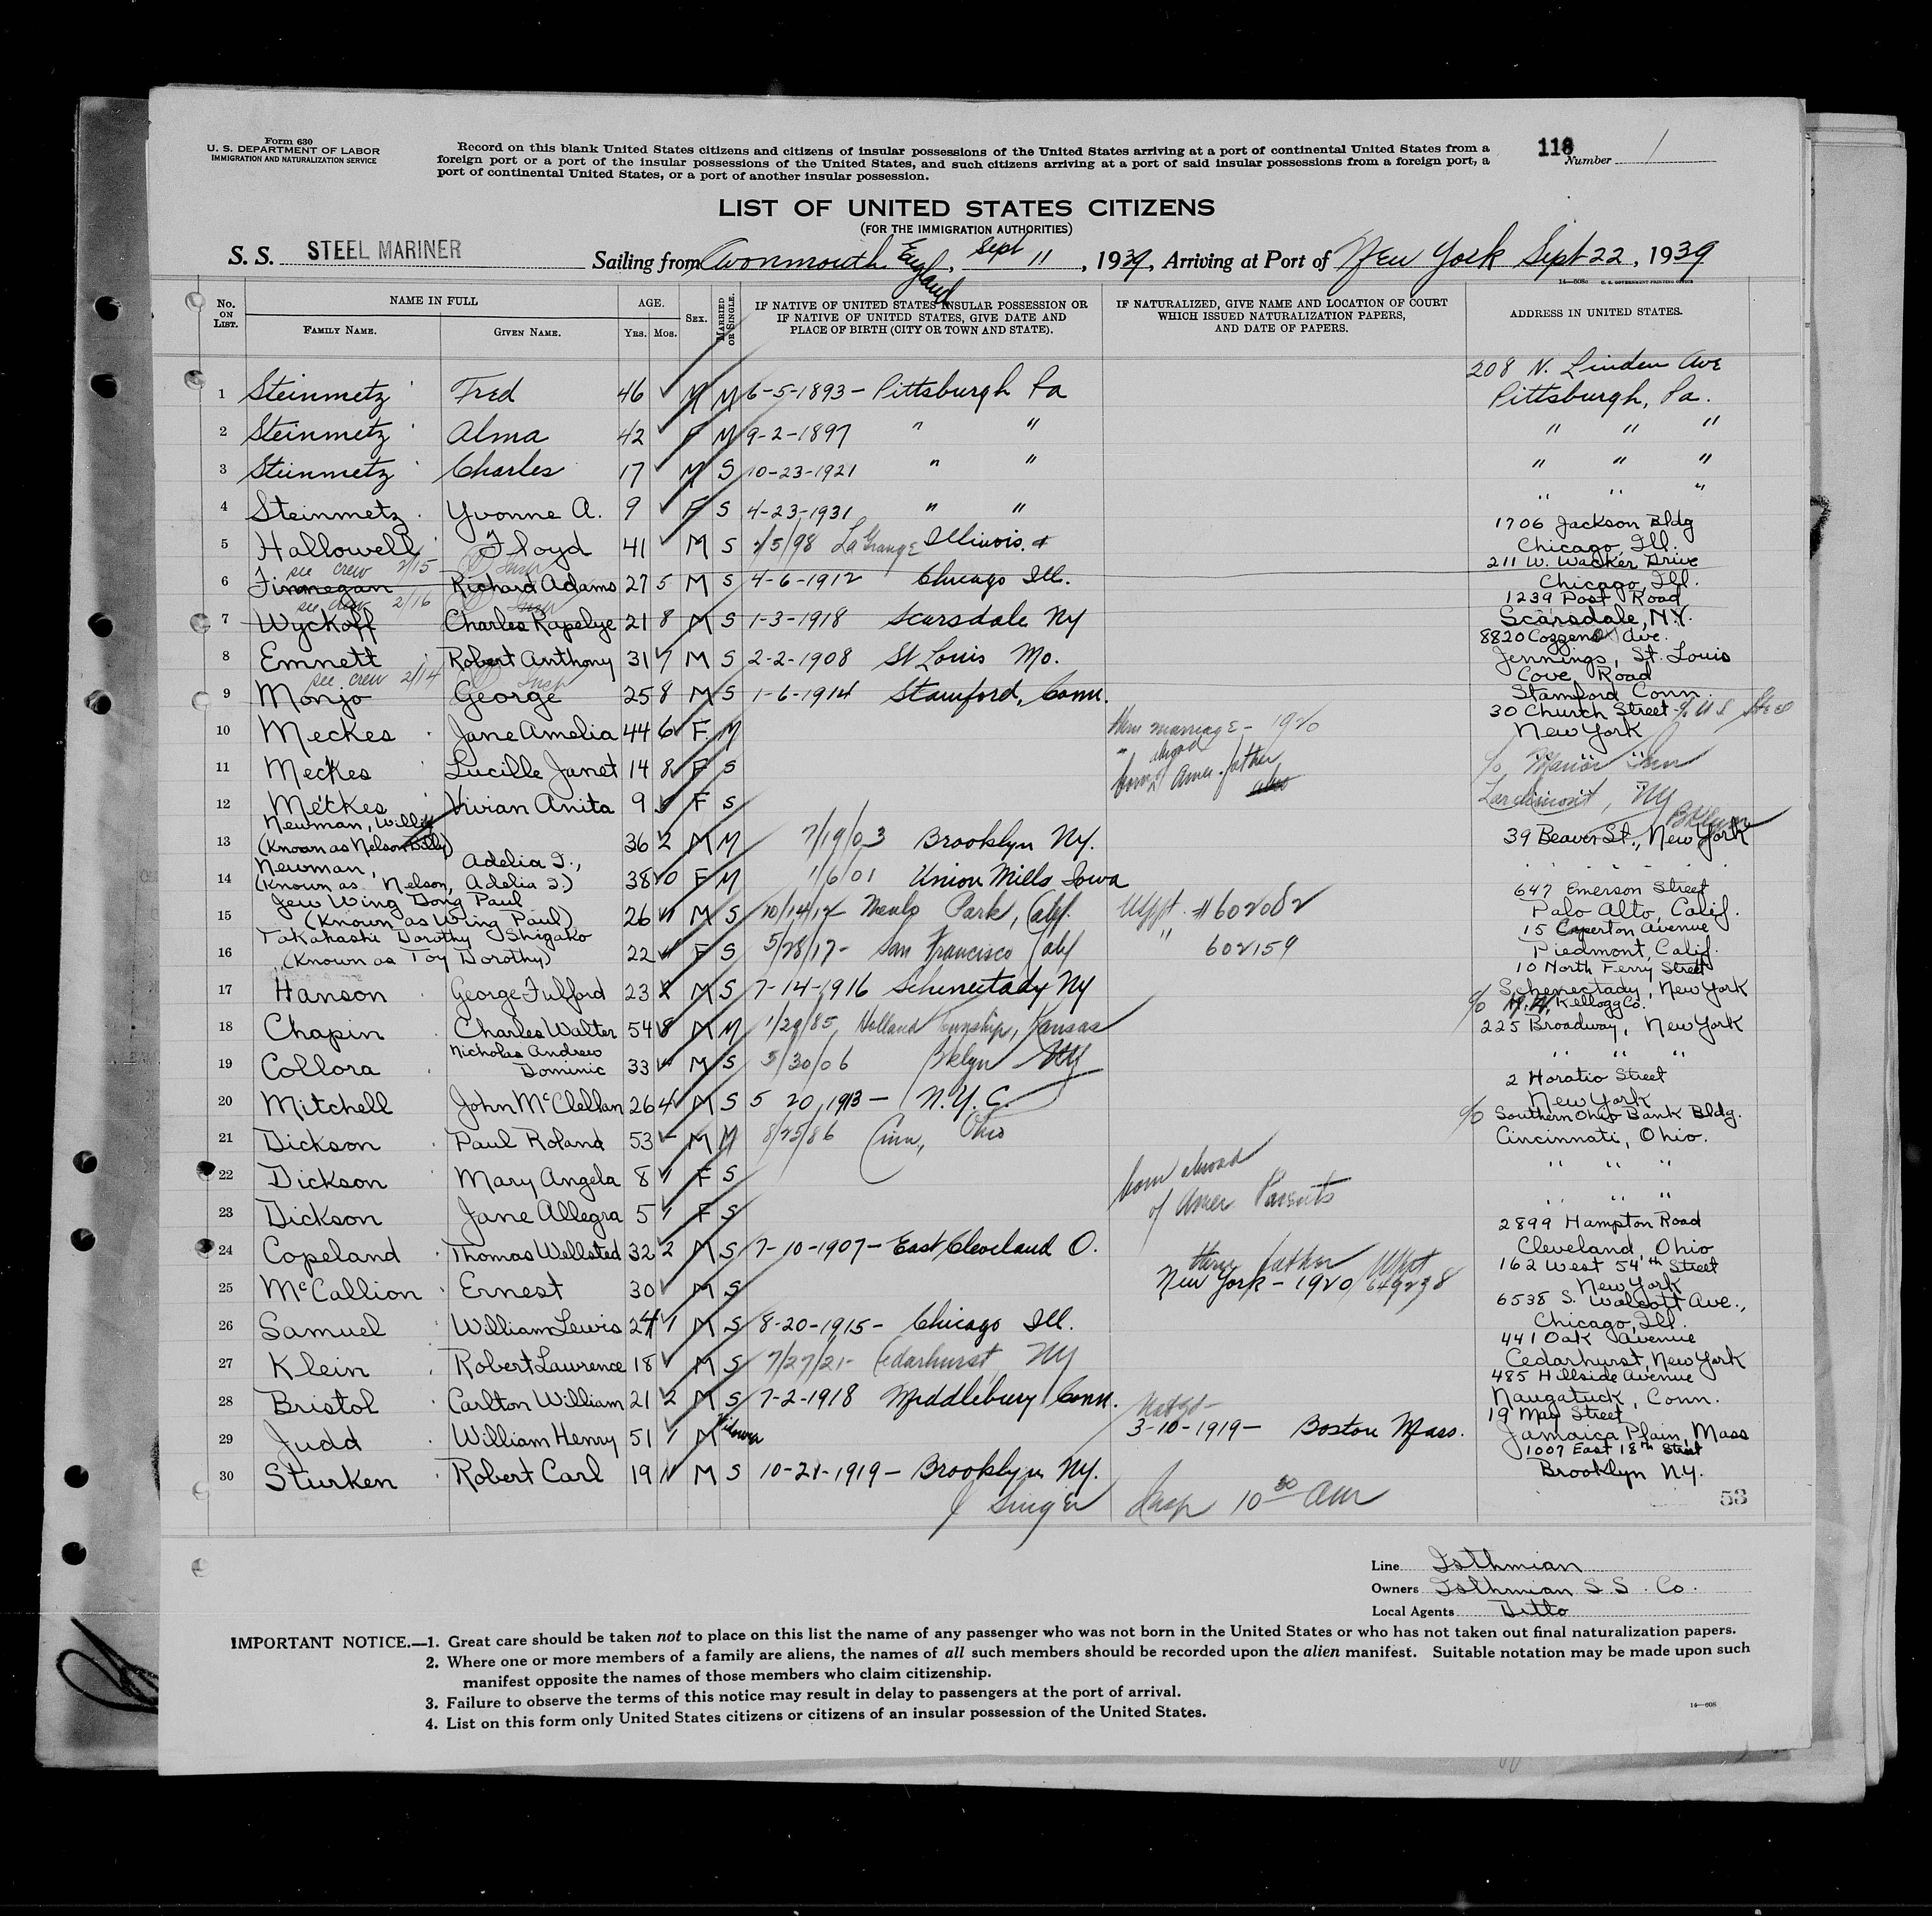 Form 630
U. S. DEPARTMENT OF LABOR
IMMIGRATION AND NATURALIZATION SERVICE
Record on this blank United States citizens and citizens of insular possessions of the United States arriving at a port of continental United States from a
foreign port or a port of the insular possessions of the United States, and such citizens arriving at a port of said insular possessions from a foreign port, a
port of continental United States, or a port of another insular possession.
118 Number 1
LIST OF UNITED STATES CITIZENS
(FOR THE IMMIGRATION AUTHORITIES)
S. S. STEEL MARINER Sailing from Avonmouth England, Sept 11, 1939, Arriving at Port of New York Sept 22, 1939
14—608a U. S. GOVERNMENT PRINTING OFFICE
No. ON LIST. NAME IN FULL FAMILY NAME. GIVEN NAME. AGE. YRS. MOS. SEX. MARRIED OR SINGLE. IF NATIVE OF UNITED STATES INSULAR POSSESSION OR IF NATIVE OF UNITED STATES, GIVE DATE AND PLACE OF BIRTH (CITY OR TOWN AND STATE). IF NATURALIZED, GIVE NAME AND LOCATION OF COURT WHICH ISSUED NATURALIZATION PAPERS, AND DATE OF PAPERS. ADDRESS IN UNITED STATES.
208 N. Linden Ave
1 Steinmetz Fred 46 M M 6-5-1893 - Pittsburgh Pa Pittsburgh, Pa.
2 Steinmetz Alma 42 F M 9-2-1897 " " " " "
3 Steinmetz Charles 17 M S 10-23-1921 " " " " "
4 Steinmetz Yvonne A. 9 F S 4-23-1931 " " " " "
1706 Jackson Bldg
5 Hallowell Floyd 41 M S 2/5/98 La Grange Illinois. Chicago, Ill.
see crew 2/15 Insp 211 W. Wacker Drive
6 Finnegan Richard Adams 27 5 M S 4-6-1912 Chicago Ill. Chicago, Ill.
see crew 2/16 Insp 1239 Post Road
7 Wyckoff Charles Rapelye 21 8 M S 1-3-1918 Scarsdale NY Scarsdale, N.Y.
8820 Cozzens Ave.
8 Emnett Robert Anthony 31 7 M S 2-2-1908 St Louis Mo. Jennings, St. Louis
see crew 2/14 Insp Cove Road
9 Monjo George 25 8 M S 1-6-1914 Stamford, Conn. Stamford Conn.
30 Church Street c/o U S Steel
10 Meckes Jane Amelia 44 6 F M thru marriage - 1920 New York
11 Meckes Lucille Janet 14 8 F S born abroad Amer. father c/o Manor Inn
12 Meckes Vivian Anita 9 F S Larchmont, NY
Newman, Willy Bklyn
13 (Known as Nelson Billy) 36 2 M M 7/19/03 Brooklyn NY. 39 Beaver St., New York
Newman, Adelia I.,
14 (Known as Nelson, Adelia I.) 38 F M 1/6/01 Union Mills Iowa " " " "
Jew Wing Dong Paul 647 Emerson Street
15 (Known as Wing Paul) 26 M S 10/14/12 Menlo Park, Calif. USppt. #602082 Palo Alto, Calif.
Takahashi Dorothy Shigako 15 Caperton Avenue
16 (Known as Toy Dorothy) 22 F S 5/28/17 - San Francisco Calif " 602159 Piedmont, Calif.
10 North Ferry Street
17 Hanson George Fulford 23 2 M S 7-14-1916 Schenectady NY Schenectady, New York
c/o M. W. Kellogg Co.
18 Chapin Charles Walter 54 8 M M 1/29/85, Holland Township, Kansas 225 Broadway, New York
Nicholas Andrew
19 Collora Dominic 33 M S 5/30/06 Bklyn NY " " "
2 Horatio Street
20 Mitchell John McClellan 26 4 M S 5 20 1913 - N.Y.C. New York
c/o Southern Ohio Bank Bldg.
21 Dickson Paul Roland 53 M M 8/25/86 Cinn, Ohio Cincinnati, Ohio.
22 Dickson Mary Angela 8 F S born abroad " " "
23 Dickson Jane Allegra 5 F S of Amer Parents " " "
2899 Hampton Road
24 Copeland Thomas Wellsted 32 2 M S 7-10-1907 - East Cleveland O. Cleveland, Ohio
thru father USppt 162 West 54th Street
25 McCallion Ernest 30 M S New York - 1920 649238 New York
6538 S. Wolcott Ave.,
26 Samuel William Lewis 24 1 M S 8-20-1915 - Chicago Ill. Chicago, Ill.
441 Oak Avenue
27 Klein Robert Lawrence 18 M S 7/27/21 - Cedarhurst NY Cedarhurst, New York
485 Hillside Avenue
28 Bristol Carlton William 21 2 M S 7-2-1918 Middlebury Conn. Naugatuck, Conn.
19 May Street
29 Judd William Henry 51 1 M Widower 3-10-1919 - Boston Mass. Jamaica Plain, Mass
1007 East 18th Street
30 Sturken Robert Carl 19 11 M S 10-21-1919 - Brooklyn NY. Brooklyn N.Y.
J Singer Insp 10 30 AM 53
Line Isthmian
Owners Isthmian S.S. Co.
Local Agents Ditto
IMPORTANT NOTICE.—1. Great care should be taken not to place on this list the name of any passenger who was not born in the United States or who has not taken out final naturalization papers.
2. Where one or more members of a family are aliens, the names of all such members should be recorded upon the alien manifest. Suitable notation may be made upon such
manifest opposite the names of those members who claim citizenship.
3. Failure to observe the terms of this notice may result in delay to passengers at the port of arrival.
4. List on this form only United States citizens or citizens of an insular possession of the United States.
14—608